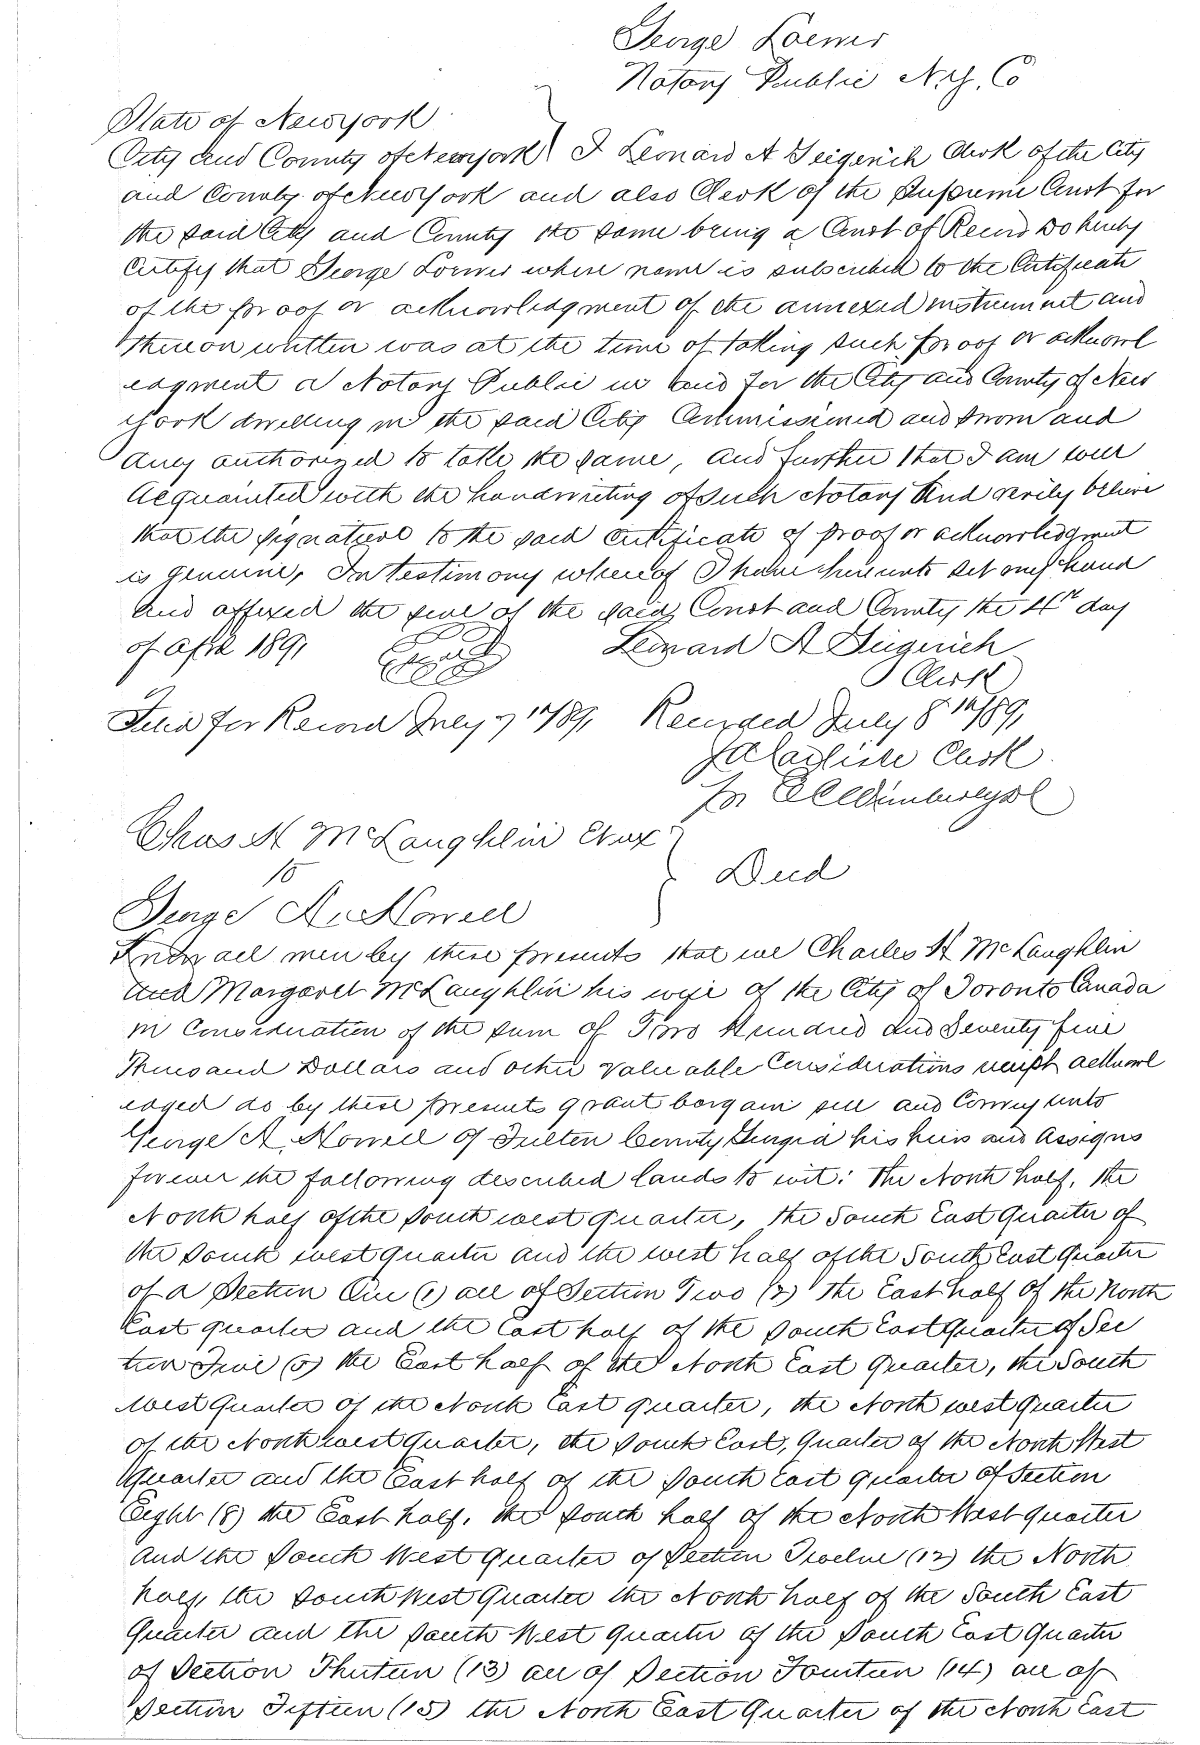 George Loewer
Notary Public N.Y. Co
State of Newyork
City and County of Newyork } I Leonard A Geigerich Clerk of the City
and County of New York and also Clerk of the Supreme Court for
the said City and County the same being a Court of Record Do hereby
Certify that George Loewer whose name is subscribed to the Certificate
of the proof or acknowledgment of the annexed instrument and
thereon written was at the time of taking such proof or acknowl
edgment a Notary Public in and for the City and County of New
York dwelling in the said City Commissioned and sworn and
duly authorized to take the same, and further that I am well
Acquainted with the handwriting of such Notary And verily believe
that the signature to the said certificate of proof or acknowledgment
is genuine, In testimony whereof I have hereunto set my hand
and affixed the seal of the said Court and County the 4th day
of Apl 1891
Leonard A Geigerich
Clerk
Filed for Record July 7th/891 Recorded July 8th/891
Carlisle Clerk
Chas H McLaughlin Et ux }
to } Deed
George A. Howell
Know all men by these presents that we Charles H McLaughlin
and Margaret McLaughlin his wife of the City of Toronto Canada
in Consideration of the sum of Two Hundred and Seventy five
Thousand Dollars and other valuable Considerations receipt acknowl
edged do by these presents grant bargain sell and Convey unto
George A. Howell of Fulton County Georgia his heirs and Assigns
forever the following described lands to wit: The North half, the
North half of the South west quarter, the South East Quarter of
the South west quarter and the west half of the South East Quarter
of a Section One (1) all of Section Two (2) the East half of the North
East quarter and the East half of the South East Quarter of Sec
tion Five (5) the East half of the North East Quarter, the South
West Quarter of the North East quarter, the North west Quarter
of the North west Quarter, the South East, Quarter of the North West
Quarter and the East half of the South East quarter of Section
Eight (8) the East half, the South half of the North West quarter
And the South West Quarter of Section Twelve (12) the North
half, the South West Quarter the North half of the South East
Quarter and the South West Quarter of the South East Quarter
of Section Thirteen (13) all of Section Fourteen (14) all of
Section Fifteen (15) the North East Quarter of the North East